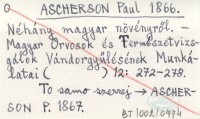 O ASCHERSON Paul 1866.
Néhány magyar növényről. —
Magyar Orvosok és Természetvizs-
gálók Vándorgyülésének Munká-
latai ( ) 12: 272-278.
To samo szerzej → ASCHER-
SON P. 1867.
BT 1002/0474